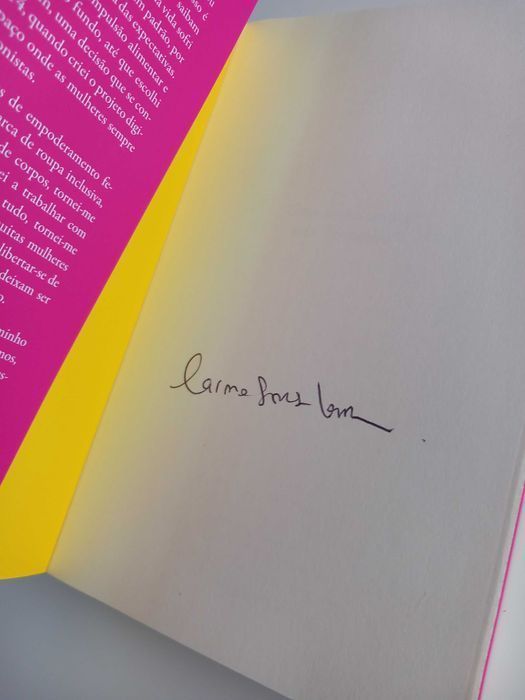 osso é
saibam
a vida sofri
m padrão, por
das expectativas,
mpulsão alimentar e
fundo, até que escolhi
m, uma decisão que se con-
, quando criei o projeto digi-
paço onde as mulheres sempre
onistas.
s de empoderamento fe-
arca de roupa inclusiva,
de corpos, tornei-me
ei a trabalhar com
tudo, tornei-me
uitas mulheres
libertar-se de
deixam ser
o.
minho
mos,
es-